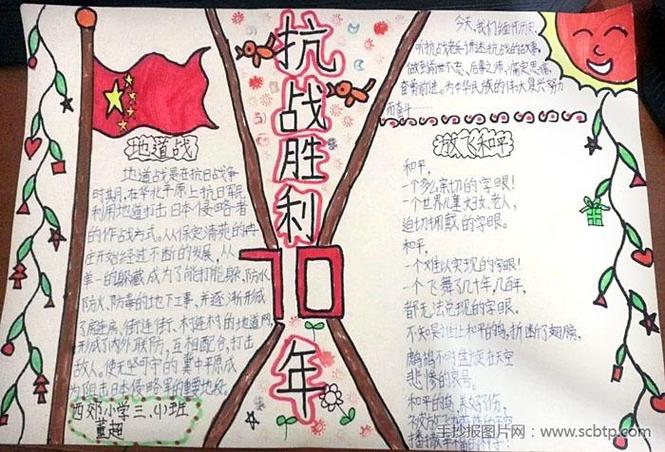 抗战胜利
70
年
地道战
地道战是在抗日战争
时期,在华北平原上抗日军民
利用地道打击日本侵略者
的作战方式。从保定清苑的冉
庄开始经过不断的发展,从
单一的躲藏成为了能打能躲、防水、
防火、防毒的地下工事,并逐渐形成
了房连房、街连街、村连村的地道网,
形成了内外联防,互相配合,打击
敌人,使无坚可守的冀中平原成
为阻击日本侵略军的重要地段。
西郊小学三、(1)班
董超
今天,我们缅怀历史,
听抗战老兵讲述抗战的故事,
做到前世不忘,后事之师,痛定思痛,
奋勇前进。为中华民族的伟大复兴努力
而奋斗……
放飞和平
和平,
一个多么亲切的字眼!
一个世界儿童、妇女、老人,
迫切拥戴的字眼。
和平,
一个难以实现的字眼!
一个飞舞了几十年、几百年,
都无法兑现的字眼。
不知是谁让和平的鸽,折断了翅膀,
鹧鸪不时盘旋在天空
悲惨的哀号。
和平的鸽,养好伤,
手抄报图片网:www.scbtp.com